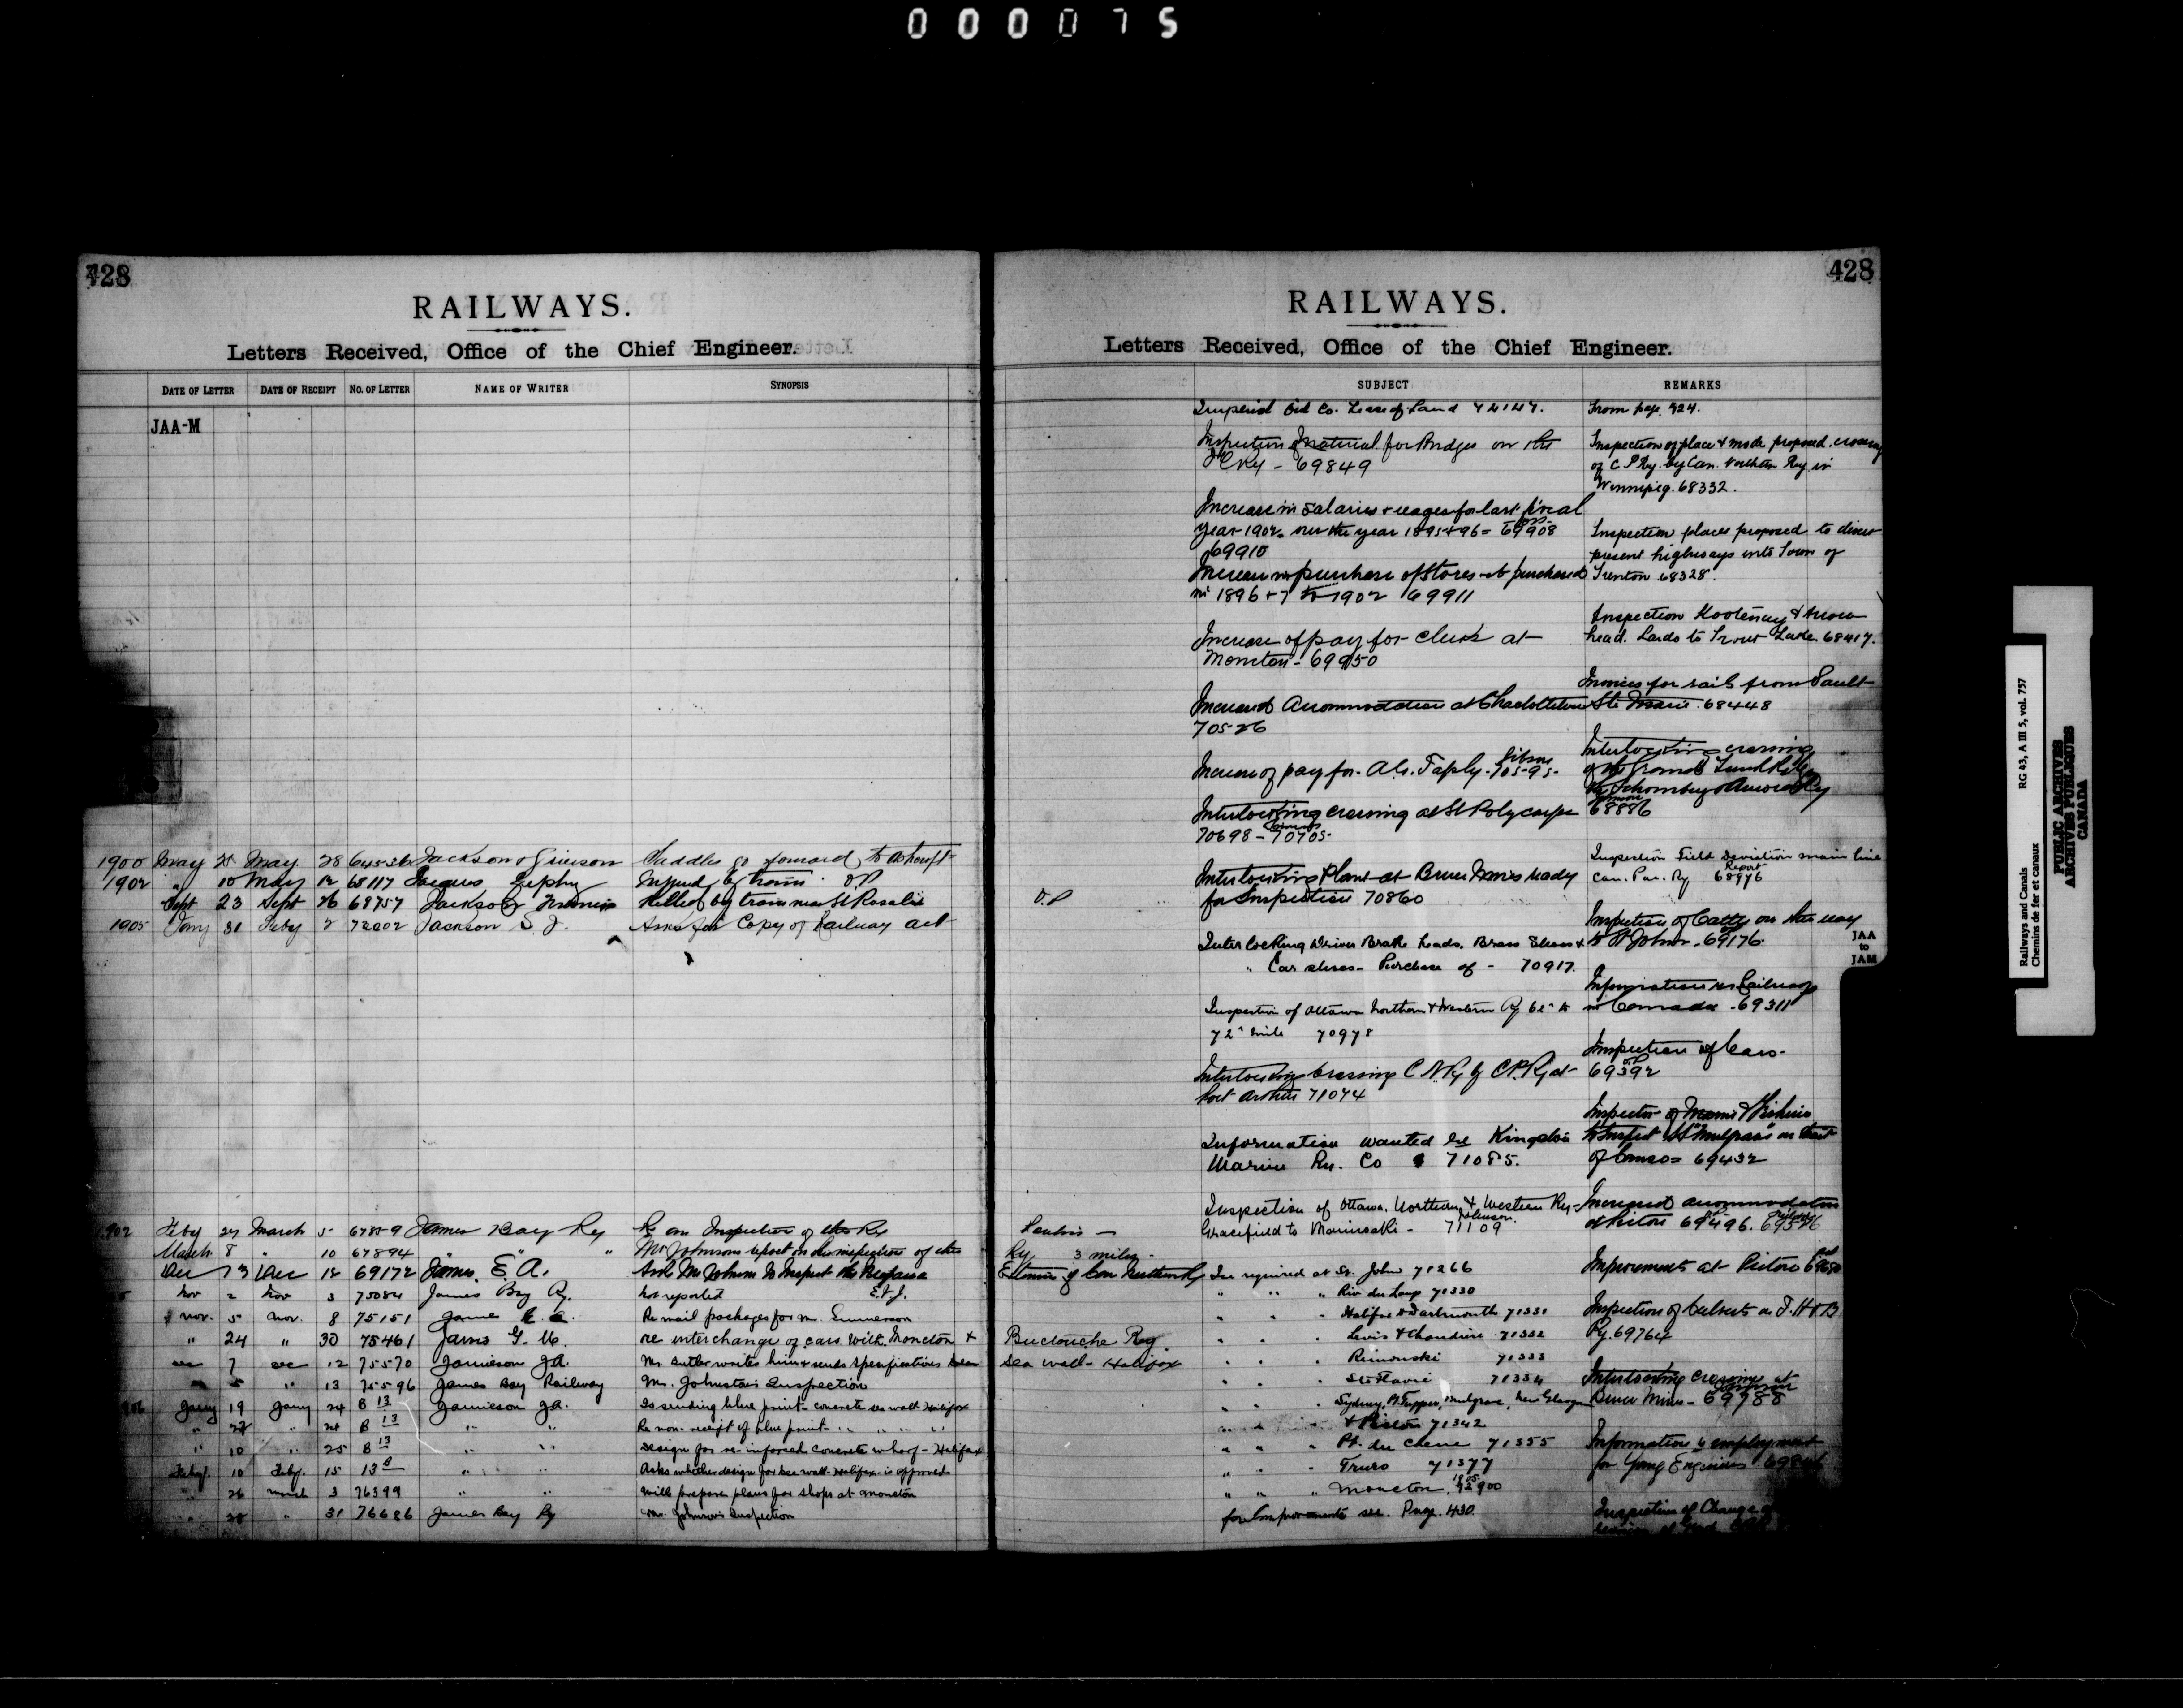 000075
428
RAILWAYS.
Letters Received, Office of the Chief Engineer.
DATE OF LETTER DATE OF RECEIPT NO. OF LETTER NAME OF WRITER SYNOPSIS
JAA-M
1900 May 25 May 28 64536 Jackson & Grierson Saddles go forward to Ashcroft
1902 " 10 May 12 68117 Jacques Zephy Injured by train O.P
Sept 23 Sept 26 68757 Jackson Killed by train near St Rosalie O.P
1905 Jany 31 Feby 2 72202 Jackson S. J. Asks for Copy of Railway act
1902 Feby 27 March 5 67859 James Bay Ry Re an Inspection of the Ry
March 8 " 10 67894 " " " Mr Johnsons report on his inspection of the Ry 3 miles -
Dec 13 Dec 14 69172 James E A. Ask Mr Johnson to Inspect the Extension of Can Northern Ry
Nov 2 Nov 3 75084 James Bay Ry. not reported
Nov. 5 Nov. 8 75151 James E. A. Re mail packages for Mr. Emmerson
" 24 " 30 75461 Jarvis G. M. re interchange of cars with Moncton & Buctouche Ry.
Dec 7 Dec 12 75570 Jamieson J.A. Mr. Butler writes him & sends specifications sea wall - Halifax
5 " 13 75596 James Bay Railway Mr. Johnston's Inspection
Jany 19 Jany 24 B 13 Jamieson J.A. Is sending blue print - concrete sea wall Halifax
" 24 B 13 " " Re non-receipt of blue print " " " "
" 10 " 25 B 13 " " Design for re-inforced concrete wharf - Halifax
Feby. 10 Feby. 15 13 B " " Asks whether design for sea wall - Halifax - is approved
" 26 March 3 76399 " " Will prepare plans for shops at Moncton
" 28 " 31 76686 James Bay Ry Mr. Johnson's Inspection
428
RAILWAYS.
Letters Received, Office of the Chief Engineer.
SUBJECT REMARKS
Imperial Oil Co. Lease of Land 74147.
Inspection of Material for Bridges on the
I C Ry - 69849
Increase in salaries & wages for last fiscal
year 1902 over the year 1895 & 96 = 69908
69910
Increase in purchase of Stores purchased
in 1896 & 7 to 1902 69911
Increase of pay for Clerks at
Moncton - 69950
Increased Accommodation at Charlottetown
70526
Increase of pay for A.G. Taply - 70595
Interlocking crossing at St Polycarpe
70698 - 70705
Interlocking Plant at Bruce Mines ready
for Inspection 70860
Interlocking Driver Brake heads. Brass Shoes &
" Car shoes - Purchase of - 70917.
Inspection of Ottawa Northern & Western Ry 62" to
72" mile 70978
Interlocking Crossing C N. Ry by C.P. Ry at
Port Arthur 71074
Information wanted re Kingston
Marine Ry. Co 71085.
Inspection of Ottawa, Northern & Western Ry -
Gracefield to Maniwaki - 71109
Ice required at St. John 71266
" " " Riv du Loup 71330
" " Halifax & Dartmouth 71331
" " " Levis & Chaudiere 71332
" " " Rimouski 71333
" " " Ste Flavie 71334
" " " Sydney, Pt. Tupper, Mulgrave, New Glasgow
& Pictou 71342
" " " Pt. du Chene 71355
" " " Truro 71377
" " " Moncton 72900
for Improvements see. Page. 430
From page 424.
Inspection of place & mode proposed crossing
of C P Ry. by Can. Northern Ry in
Winnipeg. 68332.
Inspection places proposed to divert
present highways into Town of
Trenton 68328.
Inspection Kootenay & Arrow
head. Lardo to Trout Lake. 68417.
Invoices for rails from Sault
Ste Marie. 68448
Interlocking crossing
of the Grand Trunk Ry by
the Schomberg & Aurora Ry
68886
Inspection Field Deviation main line
Can. Pac. Ry Report 68976
Inspection of Cattle on the way
to St Johns - 69176.
Information re Railways
in Canada - 69311
Inspection of Cars -
69392
Inspector of Marine & Fisheries
to Inspect "Mulgrave" in Strait
of Canso = 69432
Increased accommodation
at Pictou 69496.
Improvements at Pictou
Inspection of Culverts on T. H & B.
Ry. 69764
Interlocking crossing at
Bruce Mines - 69788
Information re employment
for Young Engineers
Inspection of Change
JAA
to
JAM
RG 43, A III 5, vol. 757
Railways and Canals
Chemins de fer et canaux
PUBLIC ARCHIVES
ARCHIVES PUBLIQUES
CANADA